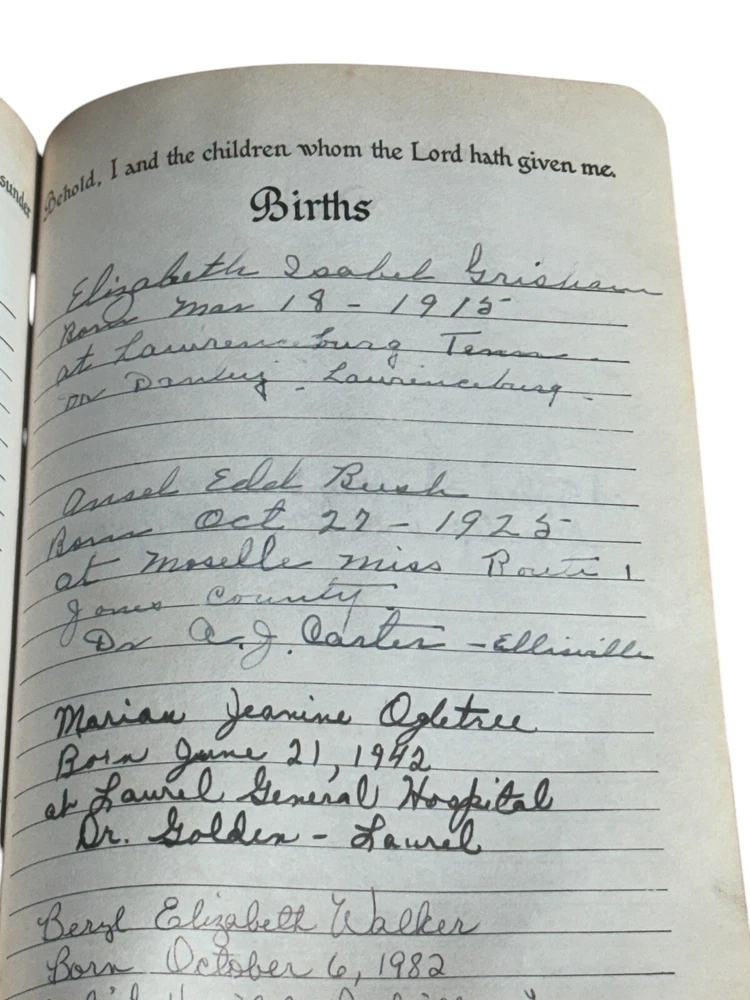 sunder
Behold, I and the children whom the Lord hath given me.
Births
Elizabeth Isabel Grisham
Born Mar 18 - 1915
at Lawrenceburg Tenn.
Dr - Laurenceburg -
Ansel Edd Bush
Born Oct 27 - 1925
at Moselle Miss Route 1
Jones County.
Dr A. J. Carter - Ellisville
Marian Jeanine Ogletree
Born June 21, 1942
at Laurel General Hospital
Dr. Golden - Laurel
Beryl Elizabeth Walker
Born October 6, 1982